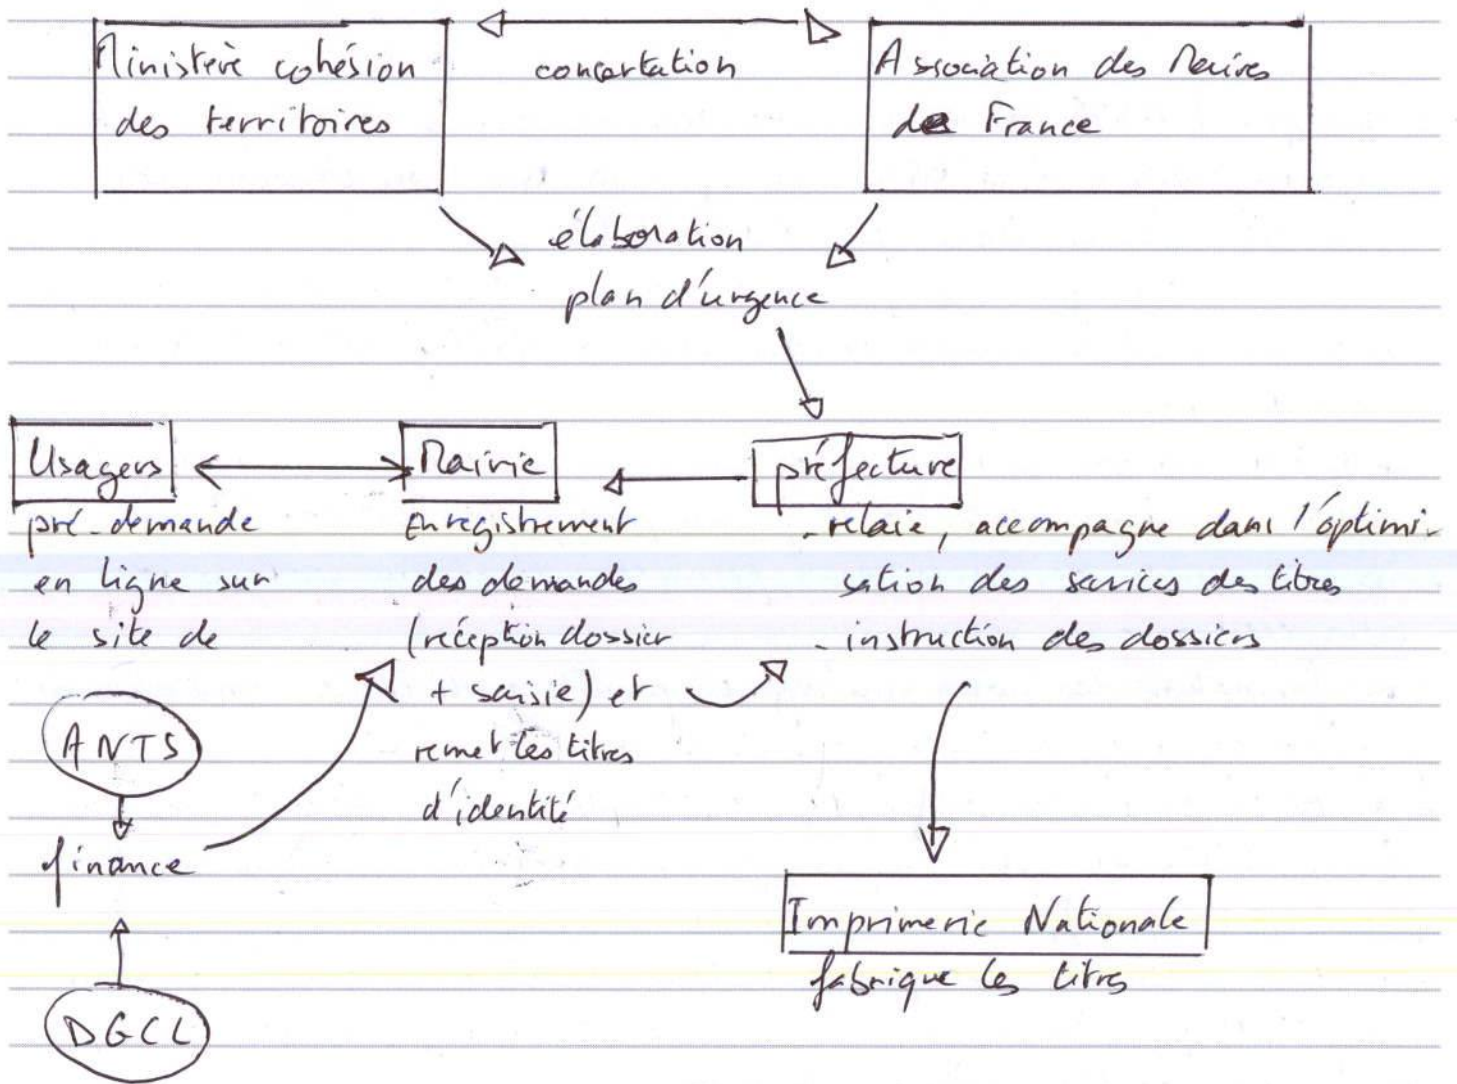 Ministère cohésion
des territoires
concertation
Association des Maires
de France
élaboration
plan d'urgence
Usagers
pré-demande
en ligne sur
le site de
ANTS
finance
DGCL
Mairie
Enregistrement
des demandes
(réception dossier
+ saisie) et
remet les titres
d'identité
préfecture
- relaie, accompagne dans l'optimi-
sation des services des titres
- instruction des dossiers
Imprimerie Nationale
fabrique les titres